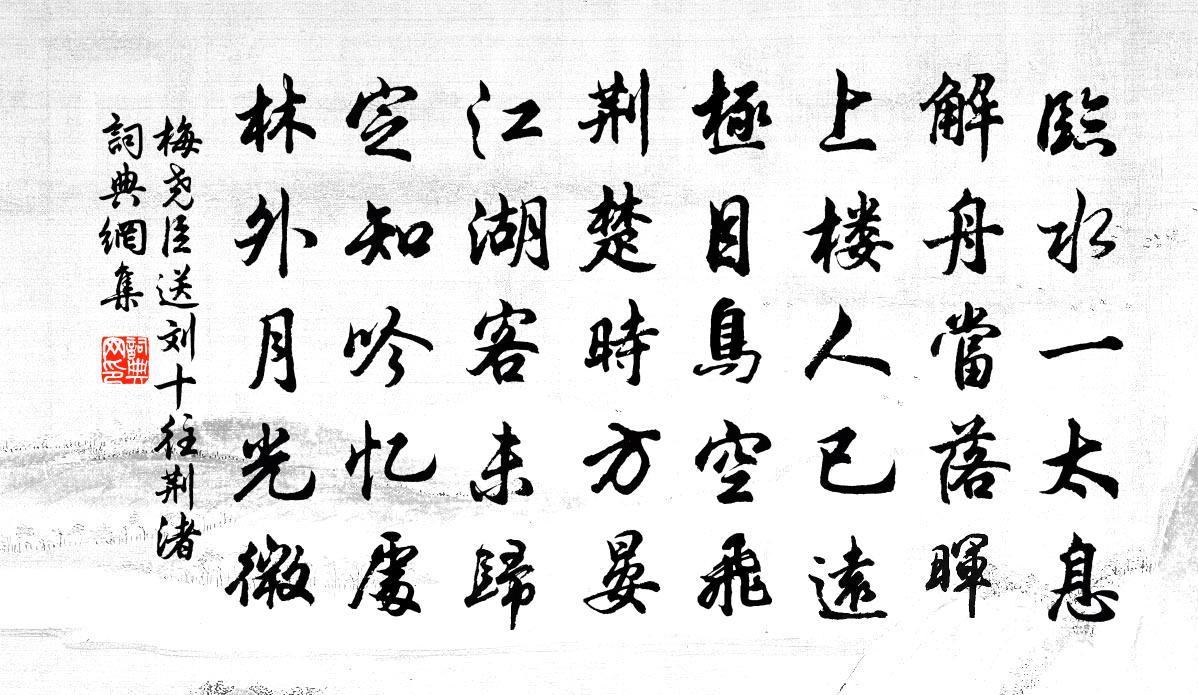 臨水一太息
解舟當落暉
上楼人已遠
極目鳥空飛
荆楚時方晏
江湖客未歸
定知吟忆處
林外月光微
梅尧臣送刘十往荆渚
詞典網集
詞典网印